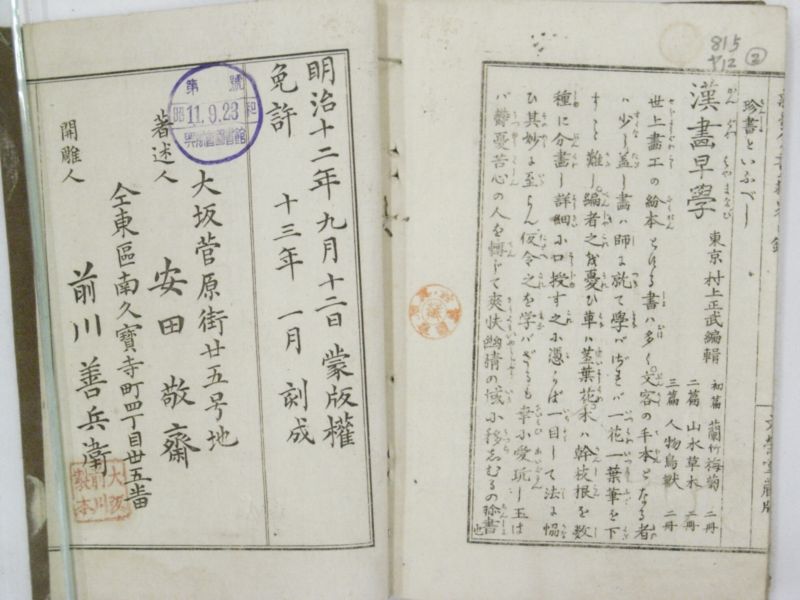 815
ヤ12
②
珍書といふべし
漢畫早學
東京 村上正武編輯
初篇 蘭竹梅菊 二冊
二篇 山水草木 二冊
三篇 人物鳥獣 二冊
世上畫工の紛本とする書ハ多く文客の手本となる者
ハ少し蓋し畫ハ師に就て學バざれバ一花一葉筆を下
すこと難し編者之を憂ひ草ハ莖葉花木ハ幹枝根を数
種に分畫し詳細小口授す之小憑らば一目して法に協
ひ其妙に至らん仮令之を学バざるも幸小愛玩し玉は
バ欝憂苦心の人を轉じて爽快幽情の域小移さしむるの珍書也
明治十二年九月十二日蒙版權
免許 十三年一月刻成
第 號
昭 11.9.23 和
大坂菅原街廿五号地
著述人 安田敬齋
仝東區南久寶寺町四丁目廿五番
開雕人 前川善兵衞
大阪
前川
製本